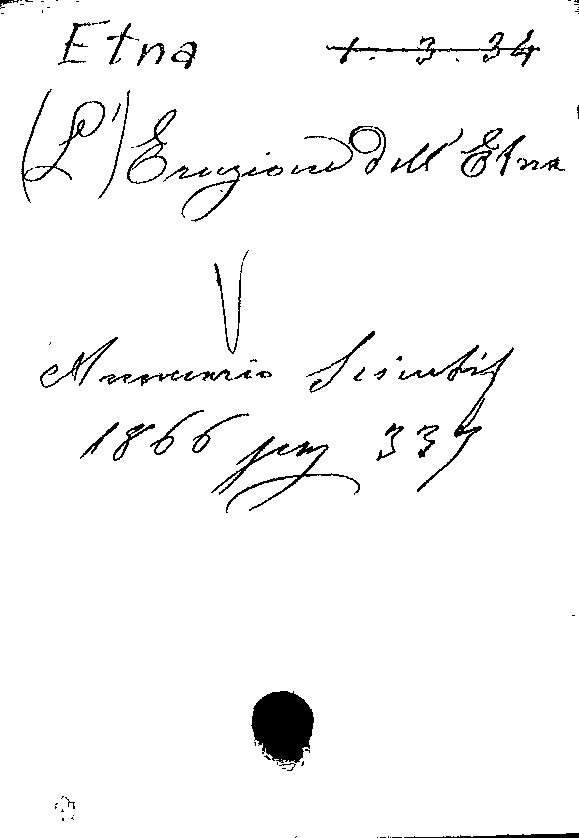 Etna 1. 3. 34
(L') Eruzione dell'Etna
V
Annuario Scientif
1866 pag 337